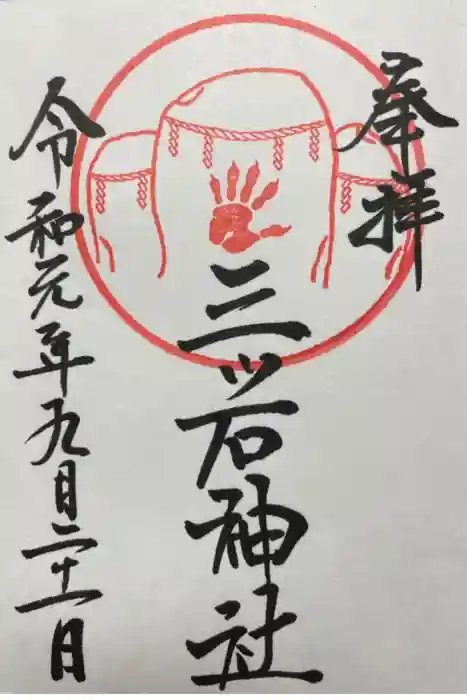 奉拝
三ッ石神社
令和元年九月二十一日